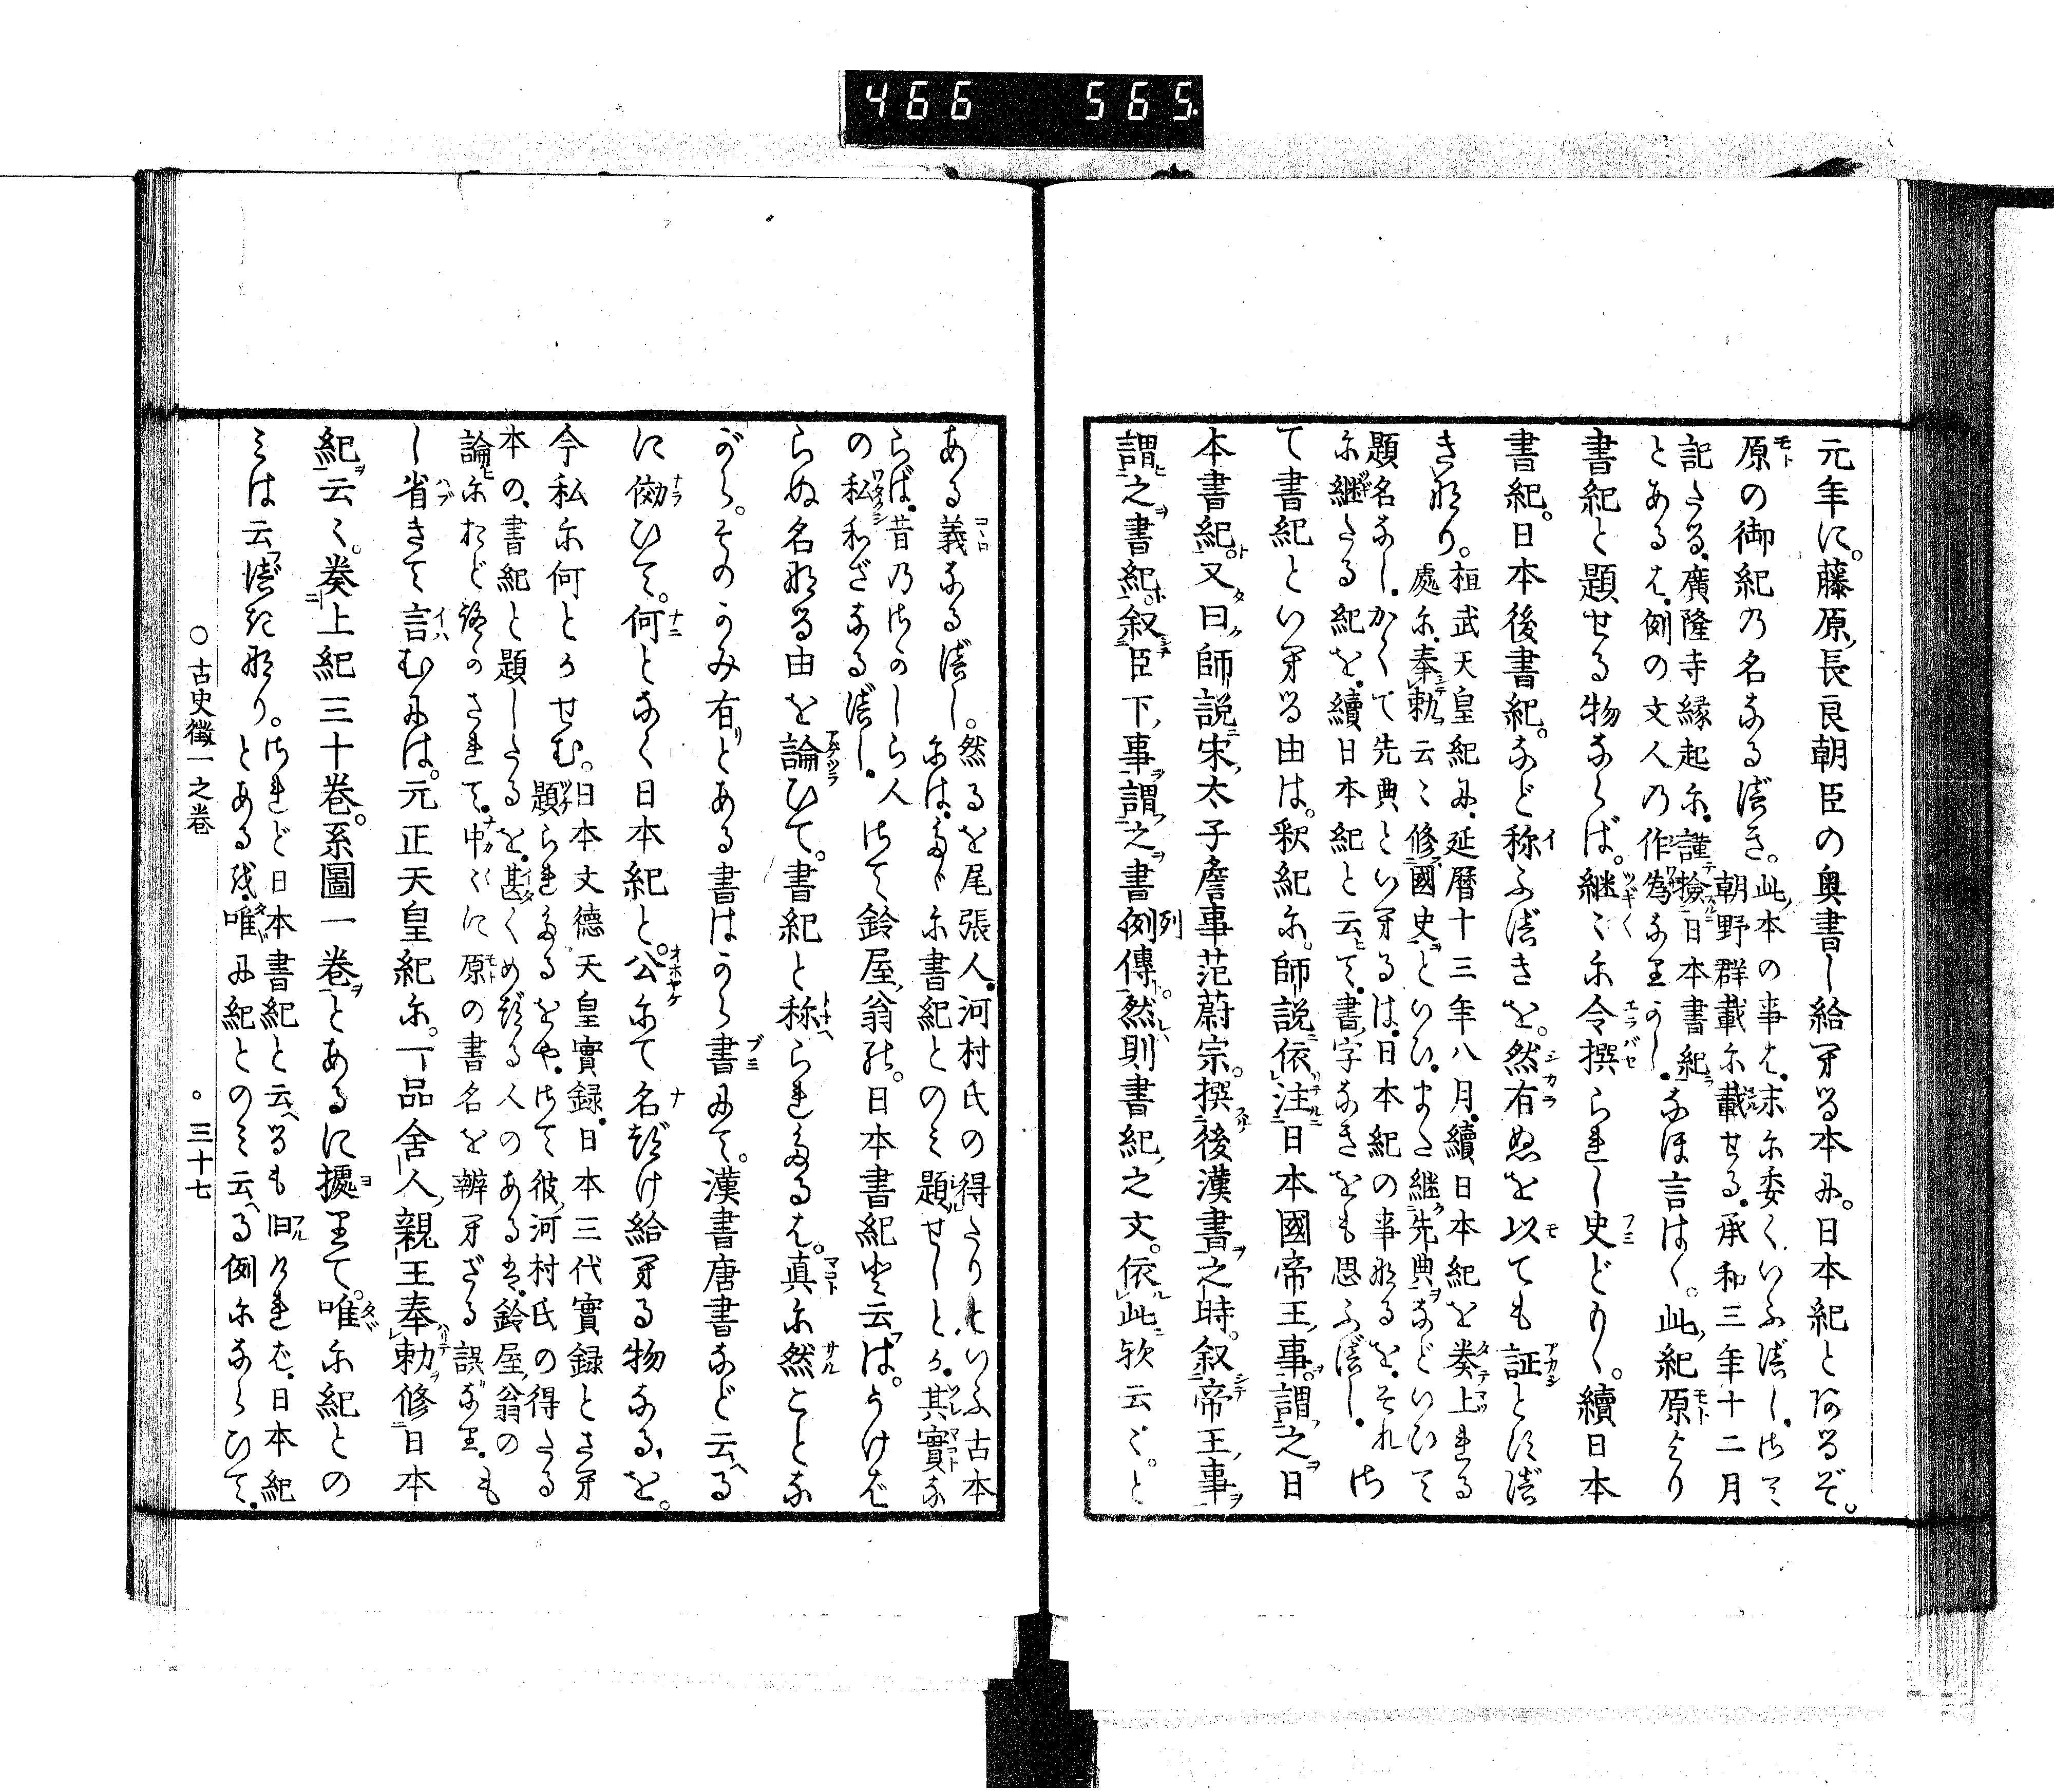 466 565.
元年に。藤原長良朝臣の奥書し給へる本に。日本紀とあるぞ。
原の御紀の名なるべき。
此本の事は。末に委くいふべし。さて
朝野群載に載せる。承和三年十二月
記たる。廣隆寺縁起に。謹檢日本書紀
とあるは。例の文人の作為なりかし。なほ言はく。此紀原より
書紀と題せる物ならば。継々に令撰られし史ども〳〵。續日本
書紀。日本後書紀。など称ふべきを。然有ぬを以ても証とすべ
きなり。
桓武天皇紀に。延暦十三年八月。續日本紀を奏上れる
處に。奉勅云々修國史といひ。また継先典などいひて
題名なし。かくて先典といへるは。日本紀の事なるを。それ
に継たる紀を。續日本紀と云て。書字なきをも思ふべし。さ
て書紀といへる由は。釈紀に。師説依注日本國帝王事謂之日
本書紀。又曰。師説宋太子詹事范蔚宗。撰後漢書之時。叙帝王事
謂之書紀。叙臣下事謂之書例傳。然則書紀之文。依此歟云々。と
列
ある義なるべし。
然るを尾張人。河村氏の得たりといふ古本
には。たゞに書紀とのみ題せしとか。其實な
らば。昔のさかしら人
の私わざなるべし。
さて鈴屋翁の。日本書紀と云は。うけば
らぬ名なる由を論ひて。書紀と称られたるは。真に然ことな
がら。そのかみ有とある書はから書にて。漢書唐書など云る
に俲ひて。何となく日本紀と。公にて名づけ給へる物なるを。
今私に何とかせむ。
日本文徳天皇實録。日本三代實録とさへ
題られたるをや。さて彼河村氏の得たる
本の。書紀と題したるを。甚くめづる人のあるは。鈴屋翁の
論におどろかされて。中々に原の書名を辨へざる誤なり。も
し省きて言むには。元正天皇紀に。一品舎人親王奉勅修日本
紀云々。奏上紀三十巻。系圖一巻とあるに據りて。唯に紀との
みは云べきなり。
されど日本書紀と云へるも旧ければ。日本紀
とある移。唯に紀とのみ云へる例にならひて。
○古史徴一之巻
○三十七